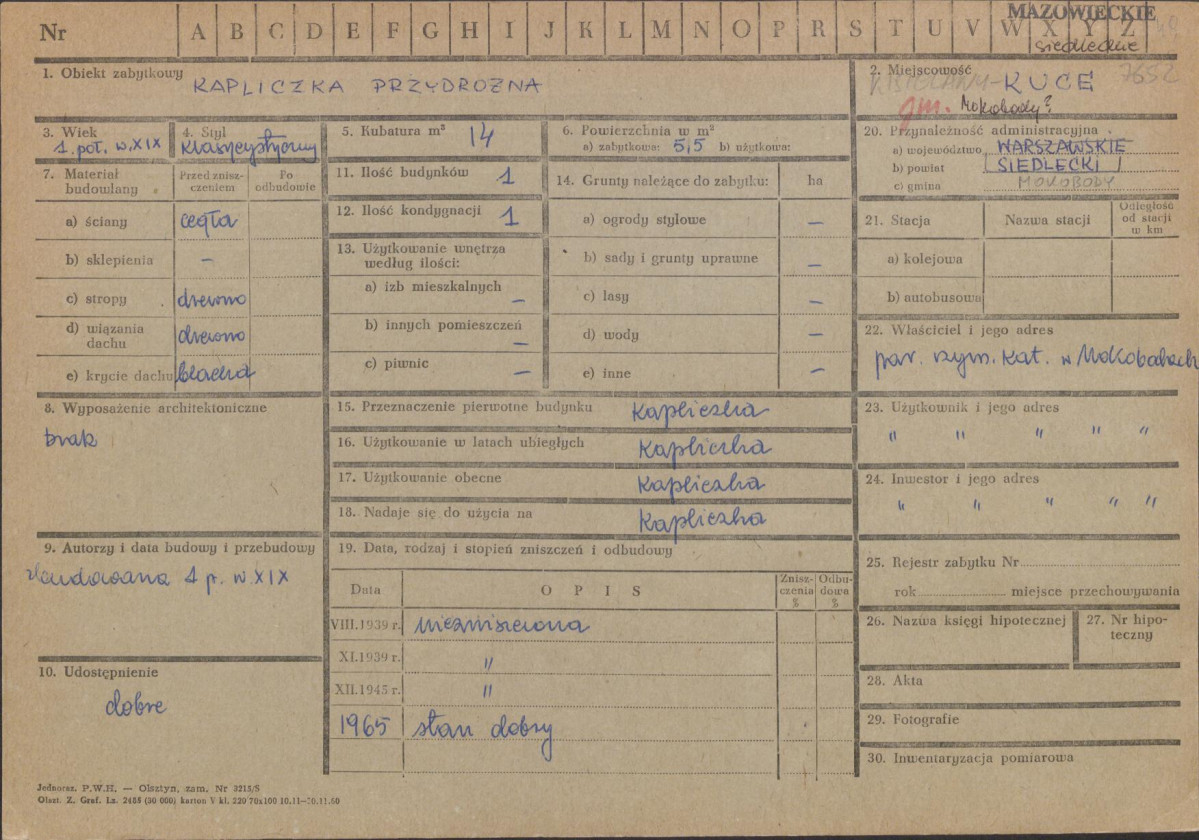 MAZOWIECKIE
siedleckie
Nr A B C D E F G H I J K L M N O P R S T U V W X Y Z
1. Obiekt zabytkowy KAPLICZKA PRZYDROŻNA
2. Miejscowość 7652
KUCE
gm. Mokobody?
3. Wiek 1. poł. w. XIX
4. Styl klasycystyczny
5. Kubatura m³ 14
6. Powierzchnia w m²
a) zabytkowa: 5,5 b) użytkowa:
7. Materiał budowlany
Przed zniszczeniem
Po odbudowie
a) ściany cegła
b) sklepienia –
c) stropy drewno
d) wiązania dachu drewno
e) krycie dachu blacha
8. Wyposażenie architektoniczne
brak
9. Autorzy i data budowy i przebudowy
zbudowana 1 p. w. XIX
10. Udostępnienie
dobre
11. Ilość budynków 1
12. Ilość kondygnacji 1
13. Użytkowanie wnętrza
według ilości:
a) izb mieszkalnych –
b) innych pomieszczeń –
c) piwnic –
14. Grunty należące do zabytku: ha
a) ogrody stylowe –
b) sady i grunty uprawne –
c) lasy –
d) wody –
e) inne –
15. Przeznaczenie pierwotne budynku kapliczka
16. Użytkowanie w latach ubiegłych kapliczka
17. Użytkowanie obecne kapliczka
18. Nadaje się do użycia na kapliczka
19. Data, rodzaj i stopień zniszczeń i odbudowy
Data O P I S Zniszczenia % Odbudowa %
VIII.1939 r. niezniszczona
XI.1939 r. "
XII.1945 r. "
1965 stan dobry
20. Przynależność administracyjna
a) województwo WARSZAWSKIE
b) powiat SIEDLECKI
c) gmina MOKOBODY
21. Stacja Nazwa stacji Odległość od stacji w km
a) kolejowa
b) autobusowa
22. Właściciel i jego adres
par. rzym. kat. w Mokobodach
23. Użytkownik i jego adres
" " " " "
24. Inwestor i jego adres
" " " " "
25. Rejestr zabytku Nr
rok miejsce przechowywania
26. Nazwa księgi hipotecznej
27. Nr hipoteczny
28. Akta
29. Fotografie
30. Inwentaryzacja pomiarowa
Jednoraz. P.W.H. — Olsztyn, zam. Nr 3215/S
Olszt. Z. Graf. Lz. 2455 (30 000) karton V kl. 220 70x100 10.11—30.11.60